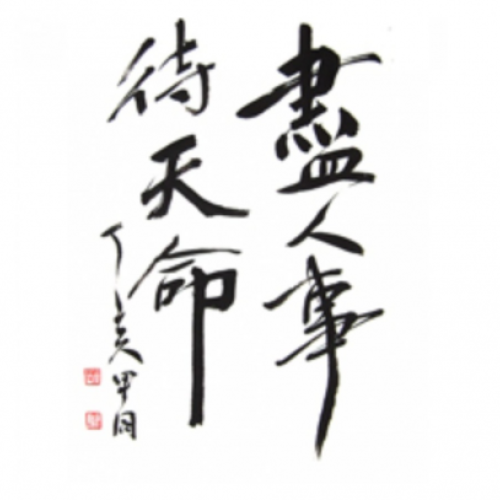 盡人事
待天命
丁亥